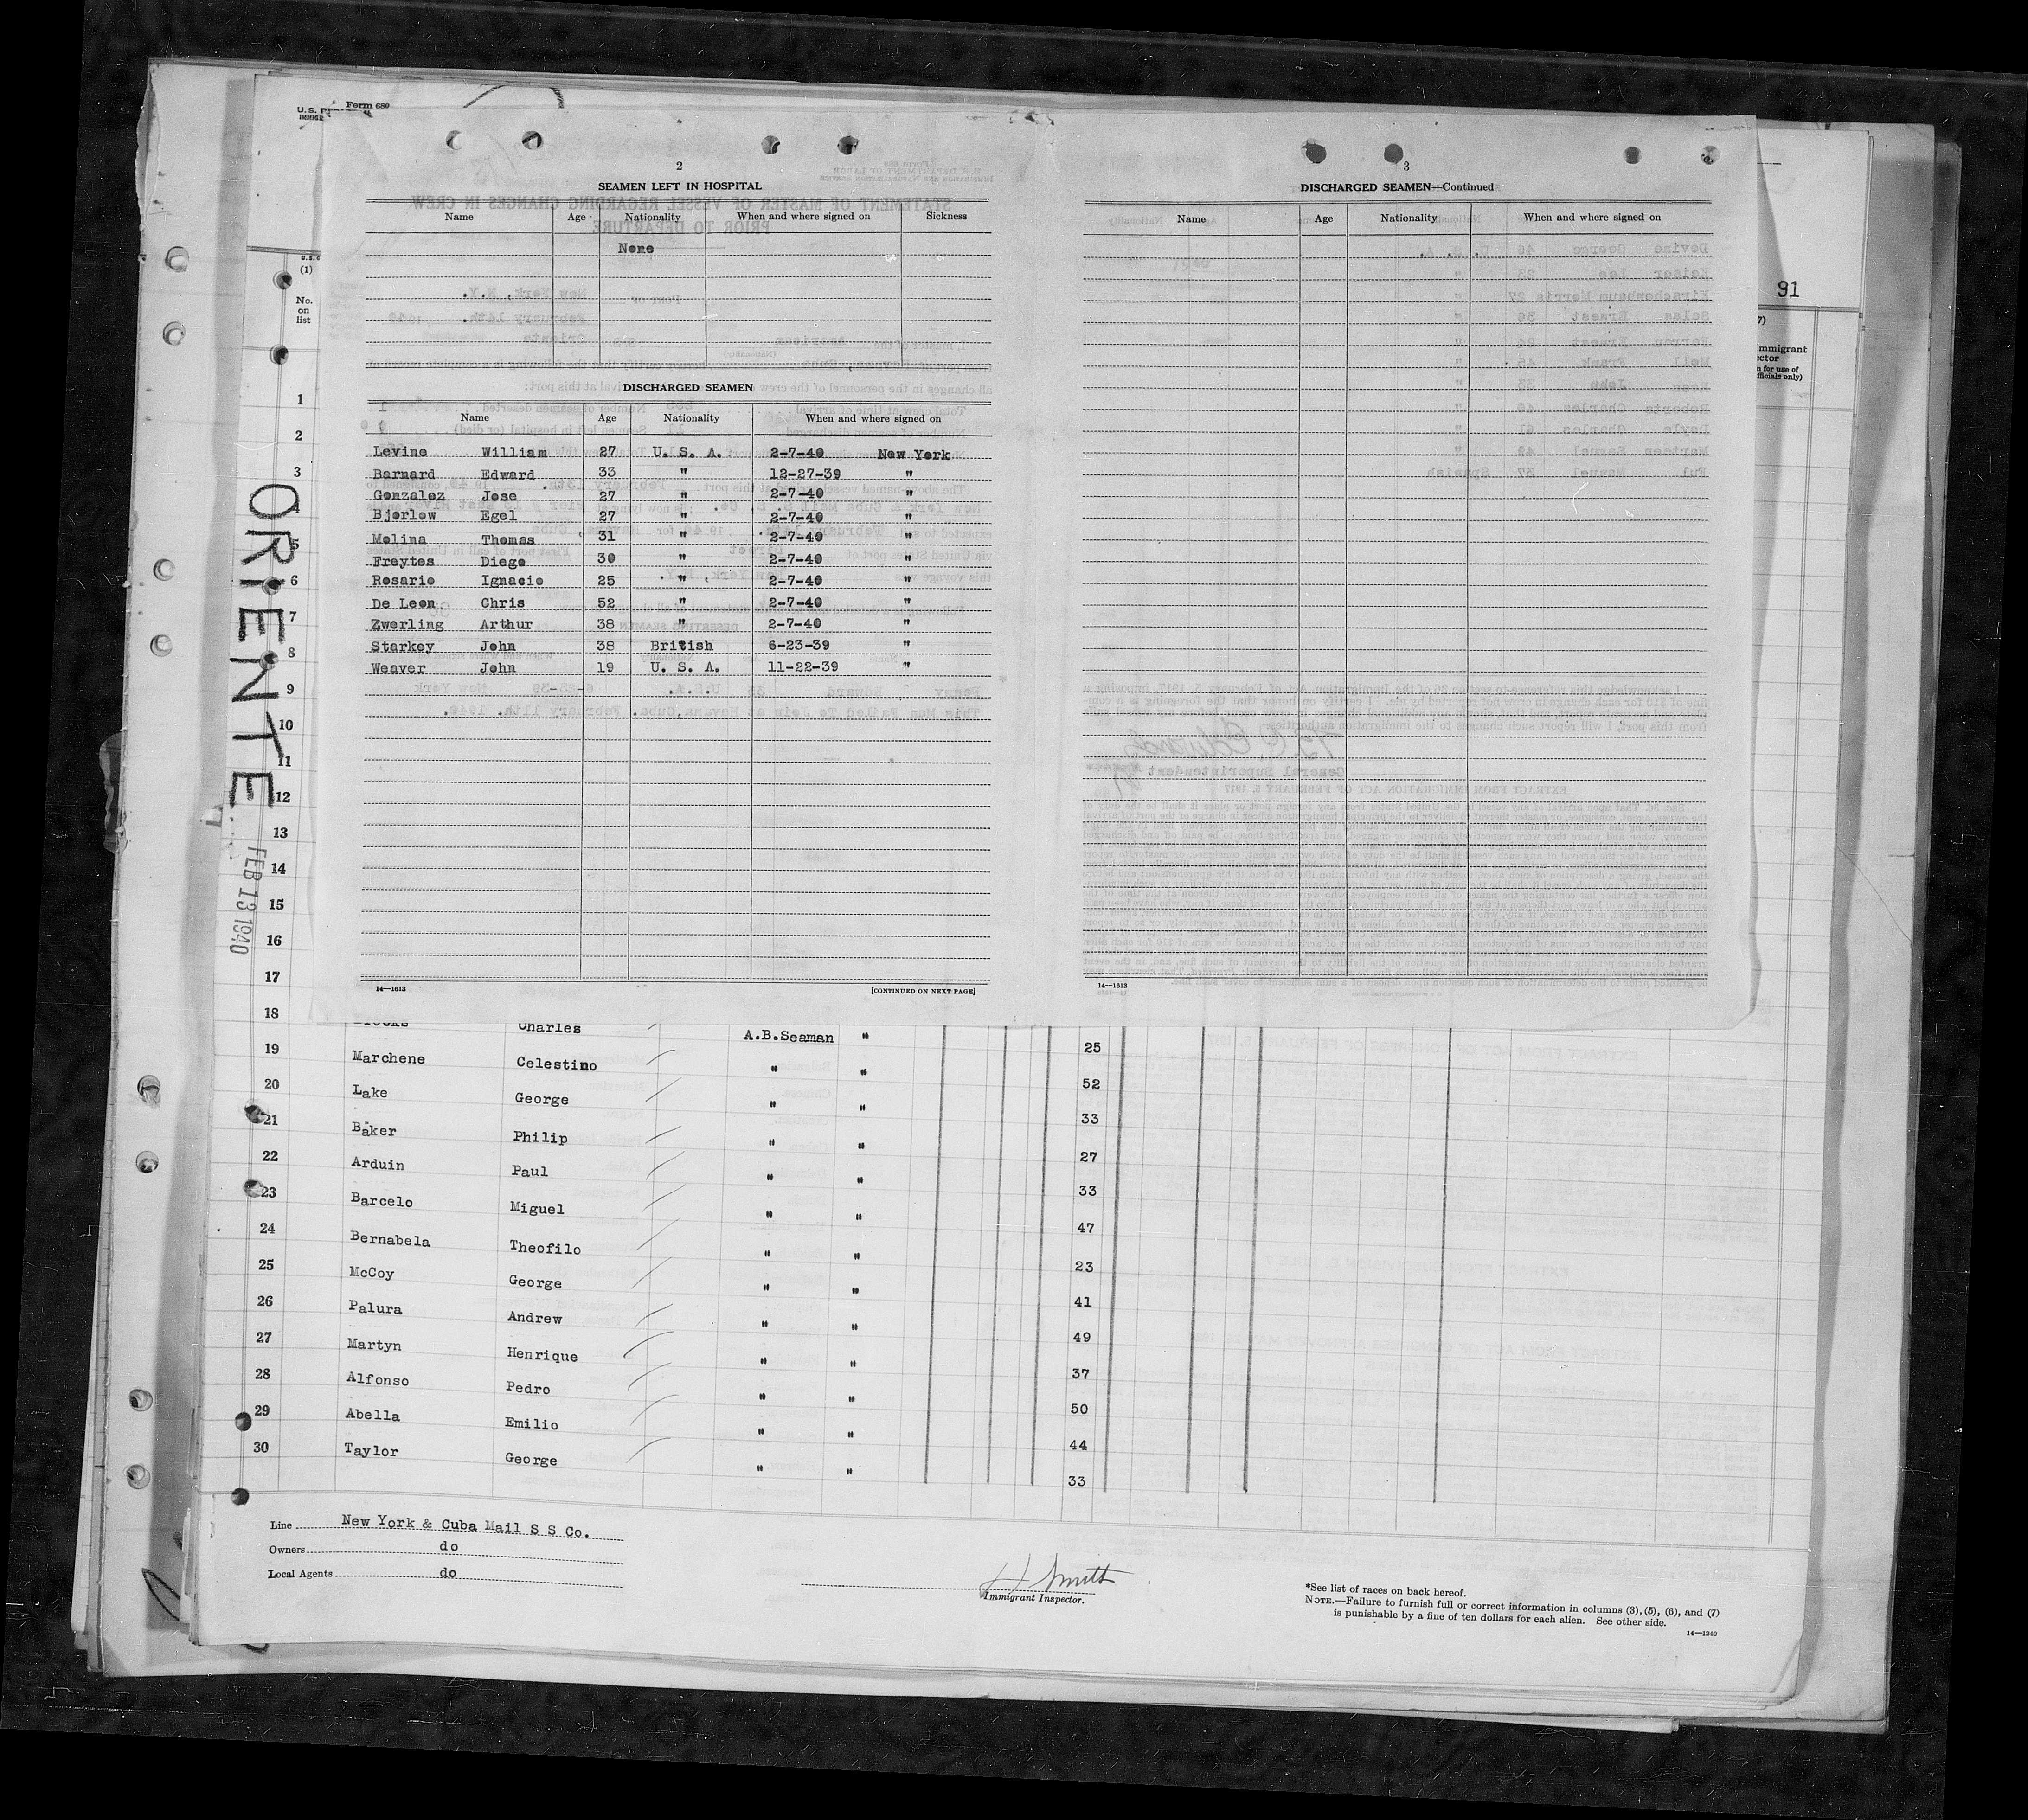 Form 680
U.S.
(1)
No.
on
list
91
mmigrant
ctor
n for use of
fficials only)
ORIENTE
FEB 13 1940
2
SEAMEN LEFT IN HOSPITAL
Name Age Nationality When and where signed on Sickness
None
DISCHARGED SEAMEN
Name Age Nationality When and where signed on
Levine William 27 U. S. A. 2-7-40 New York
Barnard Edward 33 " 12-27-39 "
Gonzalez Jose 27 " 2-7-40 "
Bjorlow Egel 27 " 2-7-40 "
Molina Thomas 31 " 2-7-40 "
Freytes Diego 30 " 2-7-40 "
Rosario Ignacio 25 " 2-7-40 "
De Leon Chris 52 " 2-7-40 "
Zwerling Arthur 38 " 2-7-40 "
Starkey John 38 British 6-23-39 "
Weaver John 19 U. S. A. 11-22-39 "
14—1613 [CONTINUED ON NEXT PAGE]
3
DISCHARGED SEAMEN—Continued
Name Age Nationality When and where signed on
14—1613
1
2
3
4
5
6
7
8
9
10
11
12
13
14
15
16
17
18 Charles A.B.Seaman " 25
19 Marchene Celestino " " 52
20 Lake George " " 33
21 Baker Philip " " 27
22 Arduin Paul " " 33
23 Barcelo Miguel " " 47
24 Bernabela Theofilo " " 23
25 McCoy George " " 41
26 Palura Andrew " " 49
27 Martyn Henrique " " 37
28 Alfonso Pedro " " 50
29 Abella Emilio " " 44
30 Taylor George " " 33
Line New York & Cuba Mail S S Co.
Owners do
Local Agents do
H Smith
Immigrant Inspector.
*See list of races on back hereof.
NOTE.—Failure to furnish full or correct information in columns (3), (5), (6), and (7)
is punishable by a fine of ten dollars for each alien. See other side.
14—1240